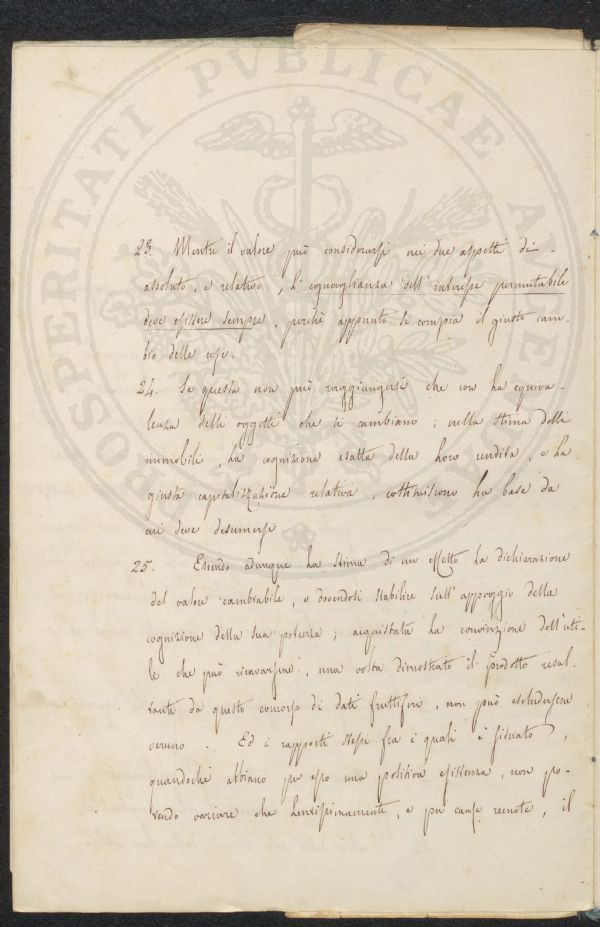 PROSPERITATI PVBLICAE AVGENDAE
23. Mentre il valore può considerarsi nei due aspetti di
assoluto, e relativo, l'eguaglianza dell'interesse permutabile
deve esistere sempre, perchè appunto si compia il giusto cam-
bio delle cose.
24. Se questa non può raggiungersi che con la equiva-
lenza delli oggetti che si cambiano; nella stima delli
immobili, la cognizione esatta della loro rendita, e la
giusta capitalizzazione relativa, costituiscono la base da
cui deve desumersi.
25. Essendo adunque la stima di un effetto la dichiarazione
del valore cambiabile, e dovendosi stabilire sull'appoggio della
cognizione della sua potenza; acquistata la convinzione dell'uti-
le che può ricavarsene, una volta dimostrato il prodotto resul-
tante da questo concorso di dati fruttiferi, non può escludersene
veruno. Ed i rapporti stessi fra i quali è situato,
quandochè abbiano per esso una positiva esistenza, non po-
tendo variare che lentissimamente, e per cause remote, il